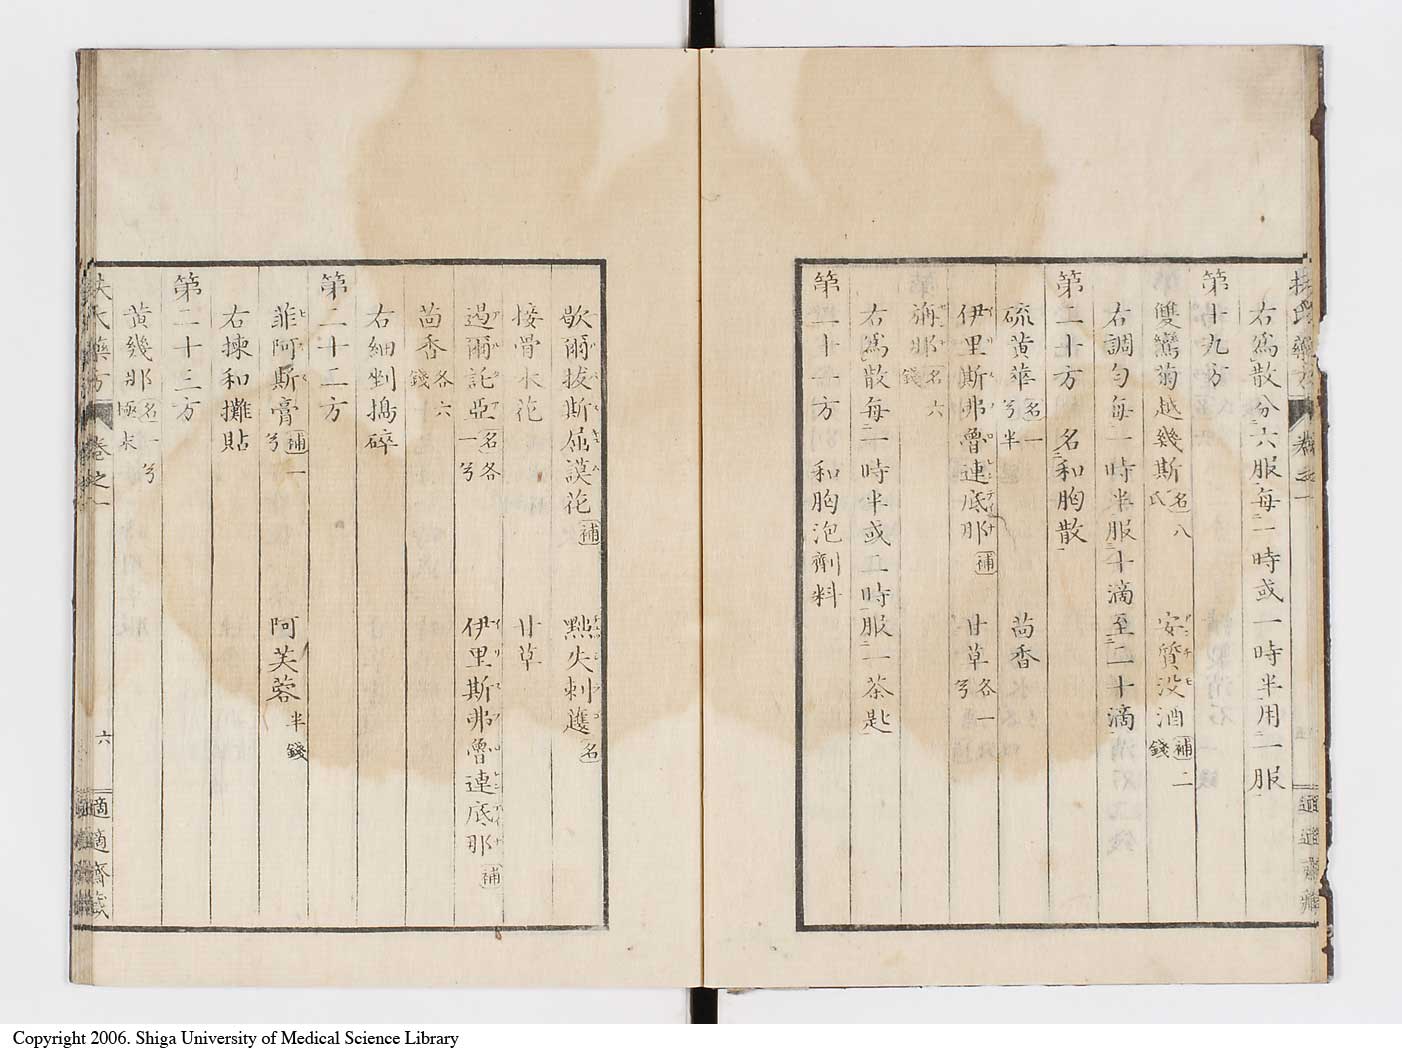 扶氏藥方 卷之一
適適齋藏
右爲散分六服每一時或一時半用一服
第十九方
雙鸞菊越幾斯 名 八氏 安質没酒 補 二錢
右調勻每一時半服十滴至二十滴
第二十方 名和胸散
硫黄華 名 一兮半 茴香
伊里斯弗魯連底那 補 甘草 各一兮
旃那 名 六錢
右爲散每一時半或二時服一茶匙
第二十一方 和胸泡劑料
歇爾拔斯屈謨花 補 㸃失刺護 名
接骨木花 甘草
過爾託亞 名 各一兮 伊里斯弗魯連底那 補
茴香 各六錢
右細剉搗碎
第二十二方
菲阿斯膏 補 一兮 阿芙蓉 半錢
右揀和攤貼
第二十三方
黄幾那 名 極末 一兮
扶氏藥方 卷之一 六
適適齋藏
Copyright 2006. Shiga University of Medical Science Library